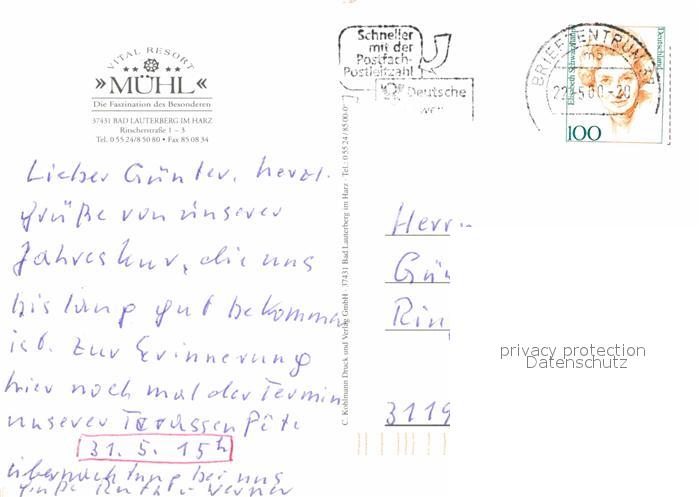 VITAL RESORT
»MÜHL«
Die Faszination des Besonderen
37431 BAD LAUTERBERG IM HARZ
Ritscherstraße 1 – 3
Tel. 0 55 24/8 50 80 • Fax 85 08 34
Lieber Günter, herzl.
Grüße von unserer
Jahreskur, die uns
bislang gut bekommen
ist. Zur Erinnerung
hier noch mal der Termin
unserer Terassen Fête
31. 5. 15h
übernachtung bei uns
C. Kohlmann Druck und Verlag GmbH · 37431 Bad Lauterberg im Harz · Tel.: 0 55 24/85 00-0
Schneller
mit der
Postfach-
Postleitzahl
Deutsche
BRIEFZENTRUM 37
mb
22.-5.00-20
Deutschland
Elisabeth Schwarzhaupt
100
Herrn
Gün
Ring
3119
privacy protection
Datenschutz